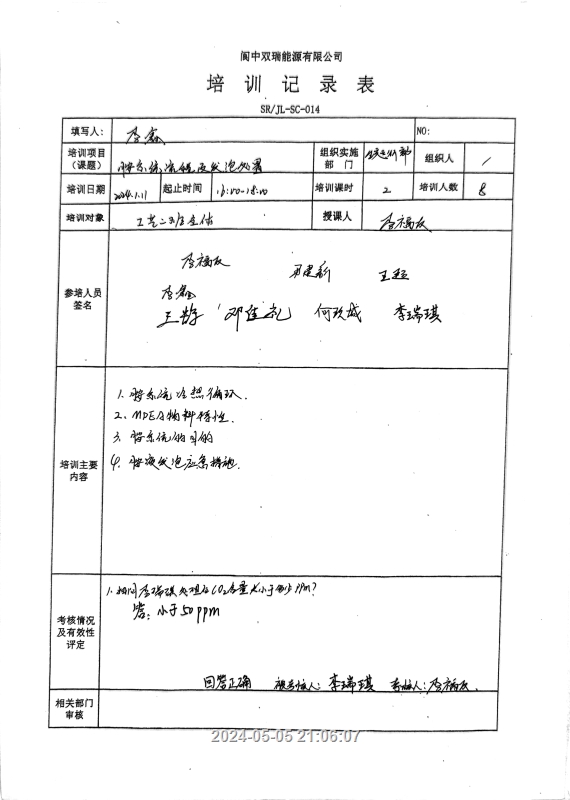 阆中双瑞能源有限公司
培训记录表
SR/JL-SC-014
填写人： 李鑫 NO:
培训项目（课题） 胺系统流程及发泡处置 组织实施部门 生产运行部 组织人 /
培训日期 2024.1.11 起止时间 16:00-18:00 培训课时 2 培训人数 8
培训对象 工艺二班全体 授课人 李福友
参培人员签名
李福友 王超
李鑫
王静 邓佳礼 何玖城 李瑞琪
培训主要内容
1. 胺系统冷热循环.
2. MDEA物料特性.
3. 胺系统的目的
4. 胺液发泡应急措施.
考核情况及有效性评定
1. 提问李瑞琪处理后CO2含量应小于多少PPM?
答: 小于50ppm
回答正确 被考核人: 李瑞琪 考核人: 李福友.
相关部门审核
2024-05-05 21:06:07